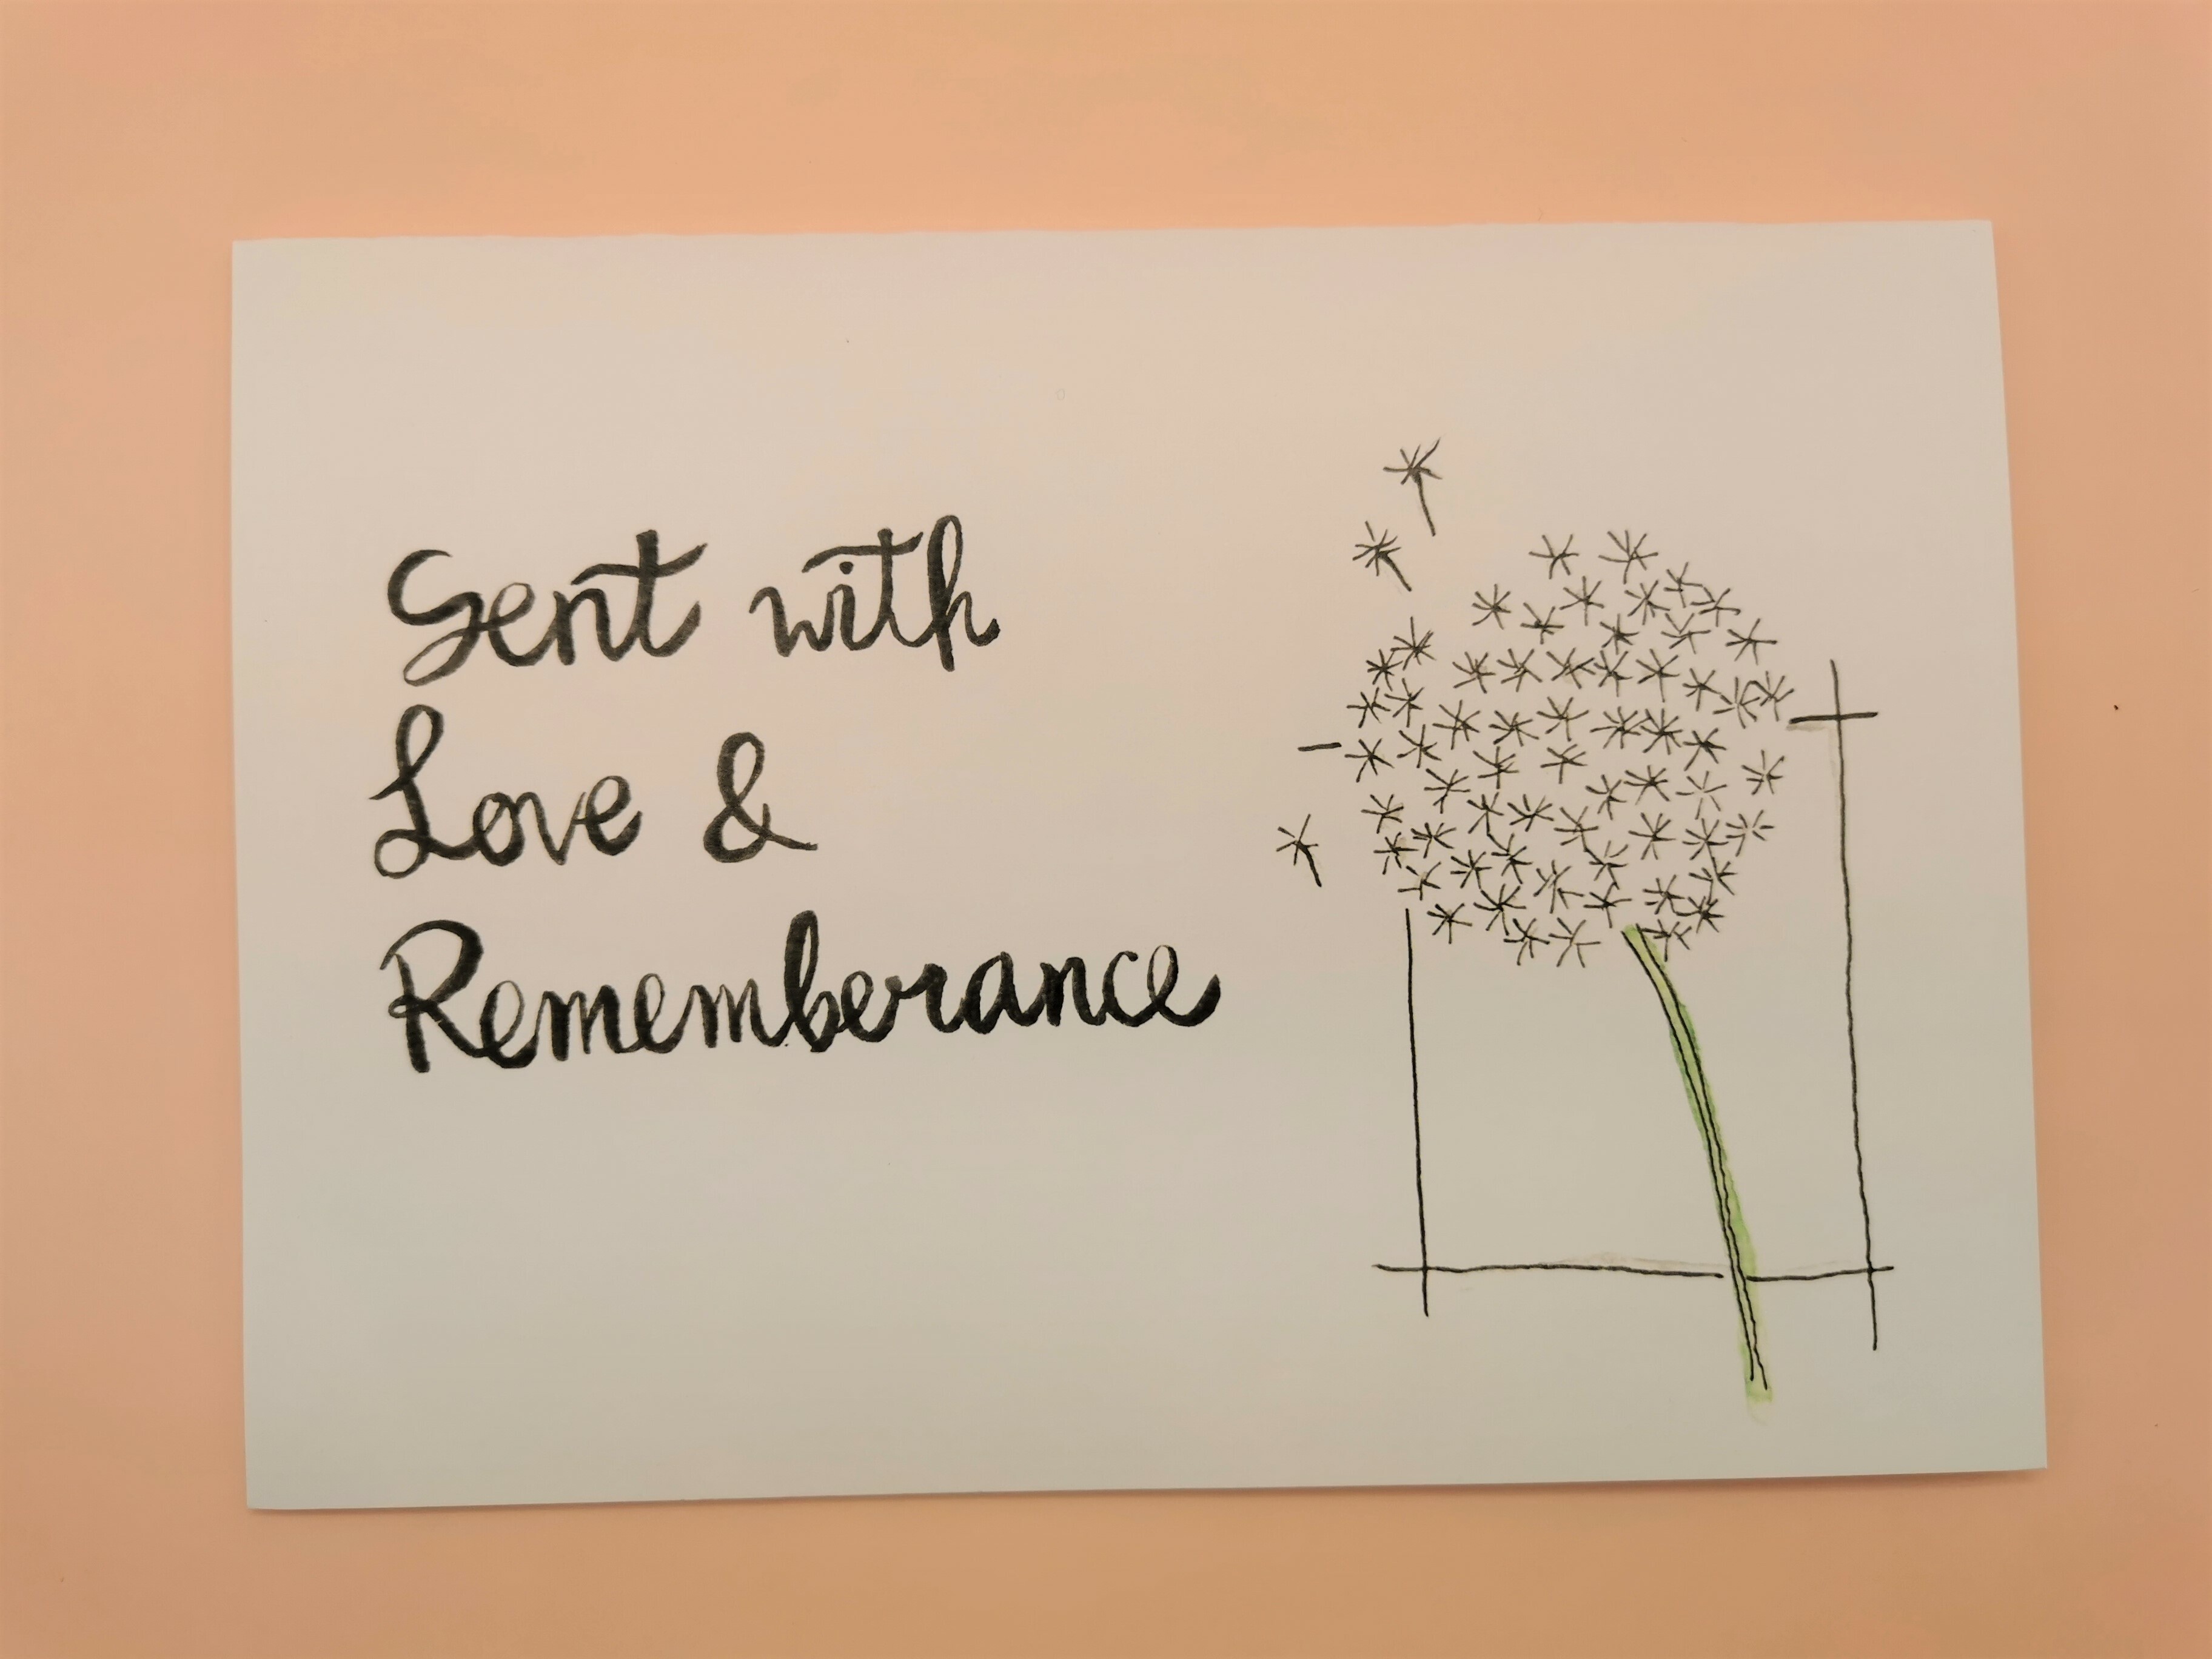 Sent with
Love &
Rememberance